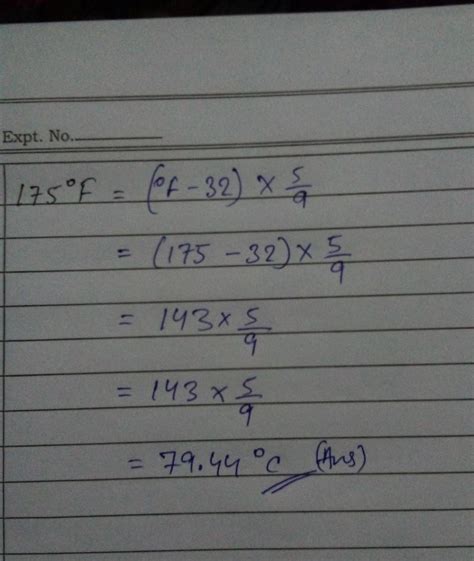 Expt. No.
175°F = (°F - 32) × 5/9
= (175 - 32) × 5/9
= 143 × 5/9
= 143 × 5/9
= 79.44 °C (Ans)